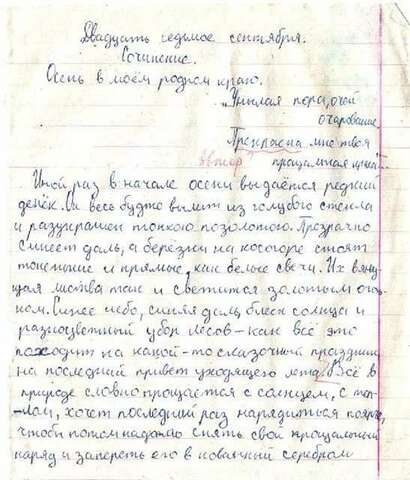 Двадцать седьмое сентября.
Сочинение.
Осень в моём родном краю.
„Унылая пора, очей
очарование
Прекрасна мне твоя
Автор? прощальная краса"...
Иной раз в начале осени выдаётся редкий
денёк. Он весь будто вылит из голубого стекла
и разукрашен тонкою позолотою. Прозрачно
синеет даль, а берёзки на косогоре стоят
тоненькие и прямые, как белые свечи. Их вяну-
щая листва так и светится золотым огонь-
ком. Синее небо, синяя даль блеск солнца и
разноцветный убор лесов – как всё это
походит на какой-то сказочный праздник
на последний привет уходящего лета. Всё в
природе словно прощается с солнцем, с теп-
лом, хочет последний раз нарядиться
чтобы потом снять свой прощальный
наряд и запереть его в кованый серебром